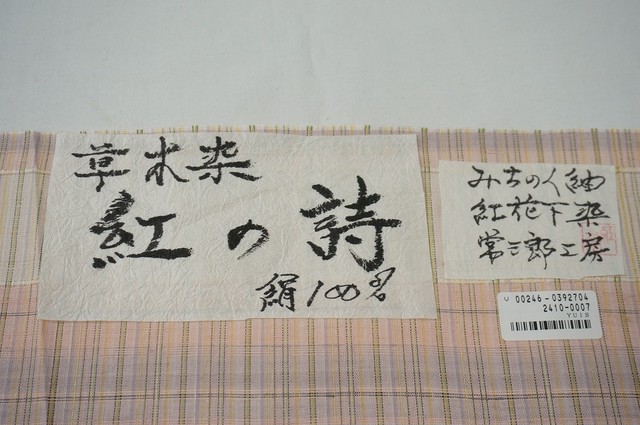 草木染
紅の詩
絹100%
みちのく紬
紅花下染
常三郎工房
00246-0392704
2410-0007
YUIS